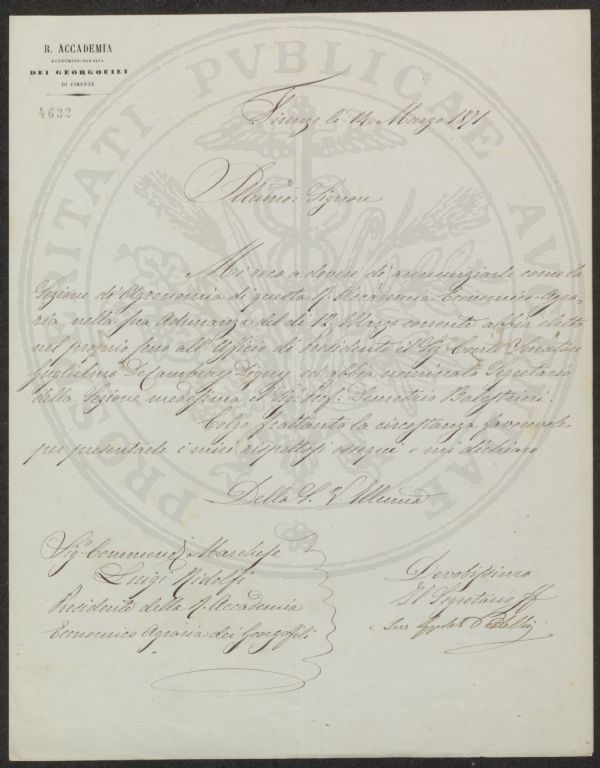 R. ACCADEMIA
ECONOMICO-AGRARIA
DEI GEORGOFILI
DI FIRENZE
4632
PROSPERITATI PVBLICAE AVGENDAE
Firenze li 14 Marzo 1871
Illmo: Signore
Mi reco a dovere di annunziarle come la
Sezione di Agronomia di questa R. Accademia Economico-Agra-
ria nella sua Adunanza del dì 12 Marzo corrente abbia eletto
nel proprio seno all'Ufficio di Presidente il Sig. Conte Senatore
Guglielmo De Cambray Digny ed abbia nominato Segretario
della Sezione medesima il Sig. Prof. Demetrio Balestrieri.
Colgo frattanto la circostanza favorevole
per presentarle i miei rispettosi ossequi e mi dichiaro
Della S. V. Illuma
Sig. Commend. Marchese
Luigi Ridolfi
Presidente della R. Accademia
Economico Agraria dei Georgofili
Devotissimo
Il Segretario ff